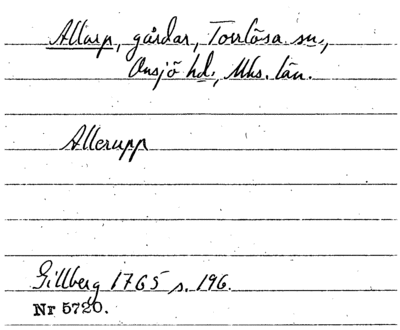 Allarp, gårdar, Torrlösa sn.,
Onsjö hd., Mhs. län.
Allerupp
Gillberg 1765 s. 196.
Nr 5720.